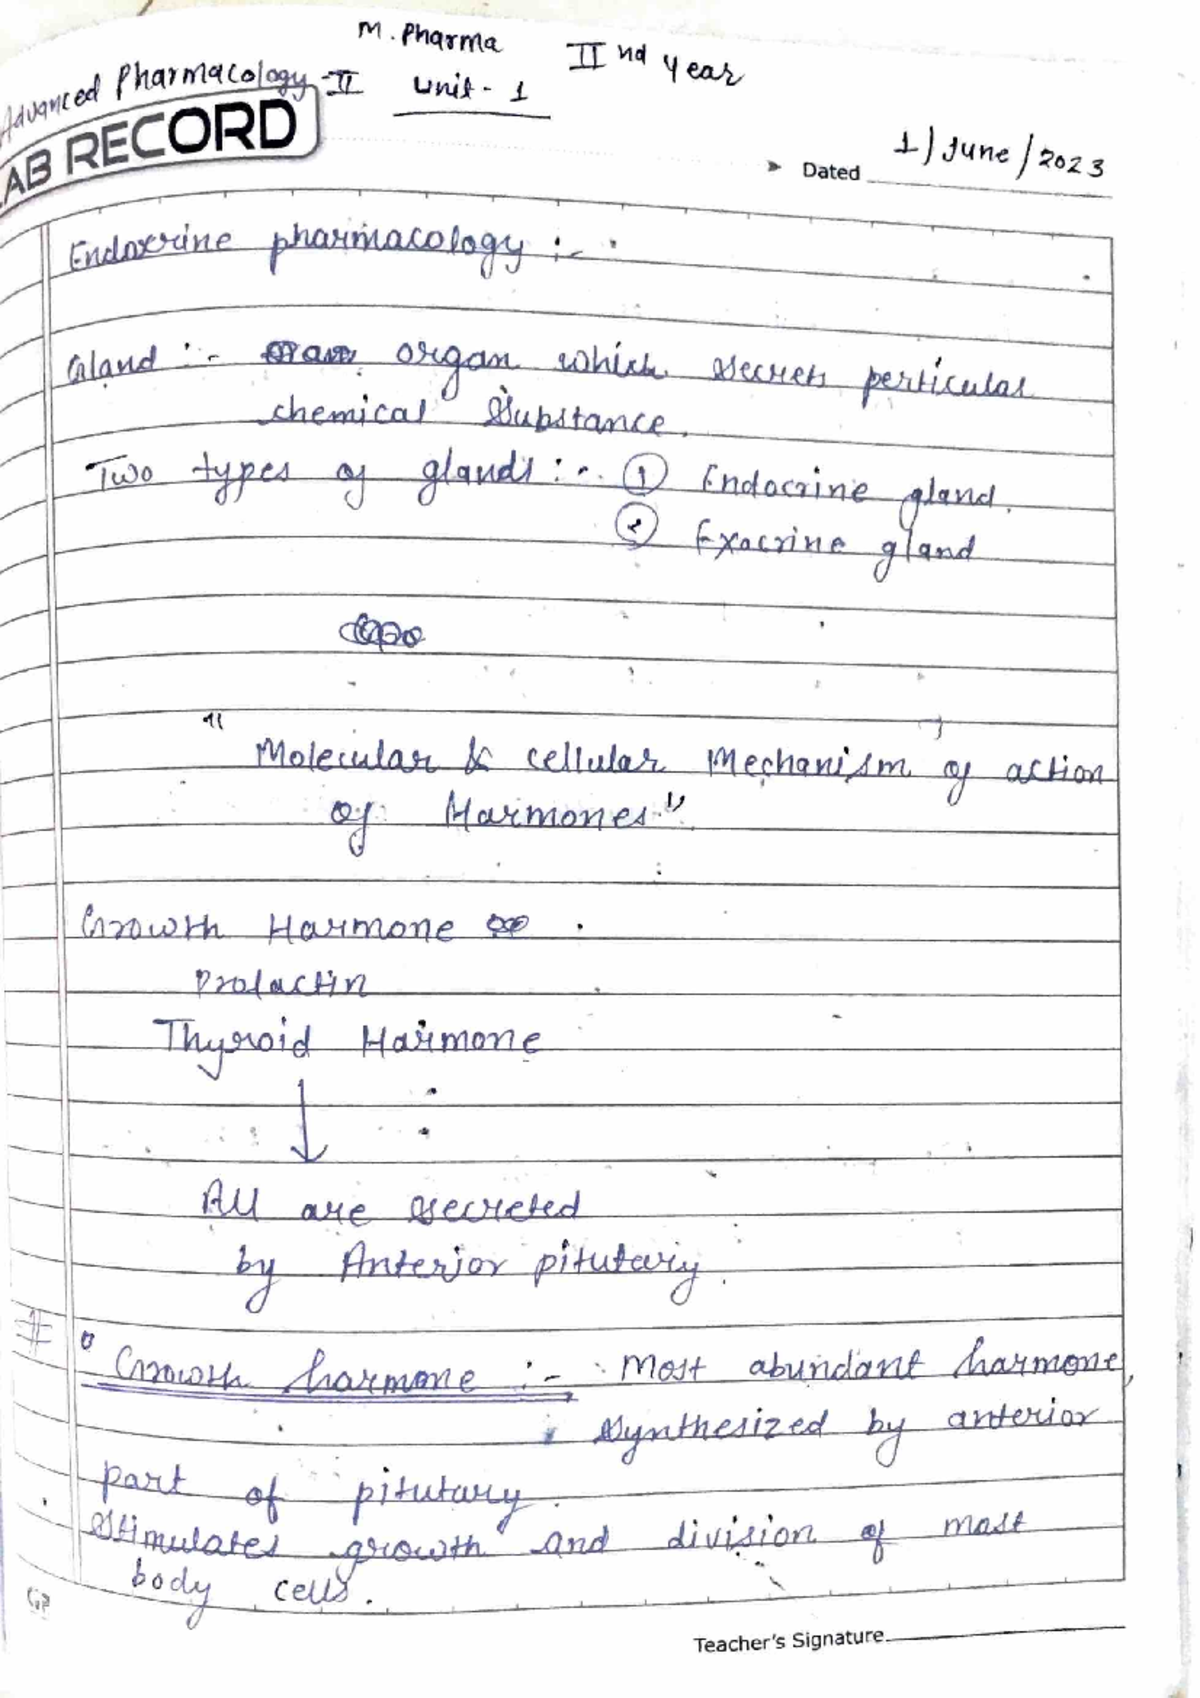 M. Pharma IInd Year
Advanced Pharmacology-II Unit-1
LAB RECORD
1/June/2023
➤ Dated
Endocrine pharmacology :-
Gland :- organ which secrets perticular
chemical Substance.
Two types of glands :- ① Endocrine gland.
② Exocrine gland
"Molecular & cellular Mechanism of action
of Harmones"
Growth Harmone
Prolactin
Thyroid Harmone
↓
All are secreted
by Anterior pitutary.
# Growth harmone :- Most abundant harmone,
synthesized by anterior
part of pitutary.
Stimulates growth and division of most
body cells.
Teacher's Signature